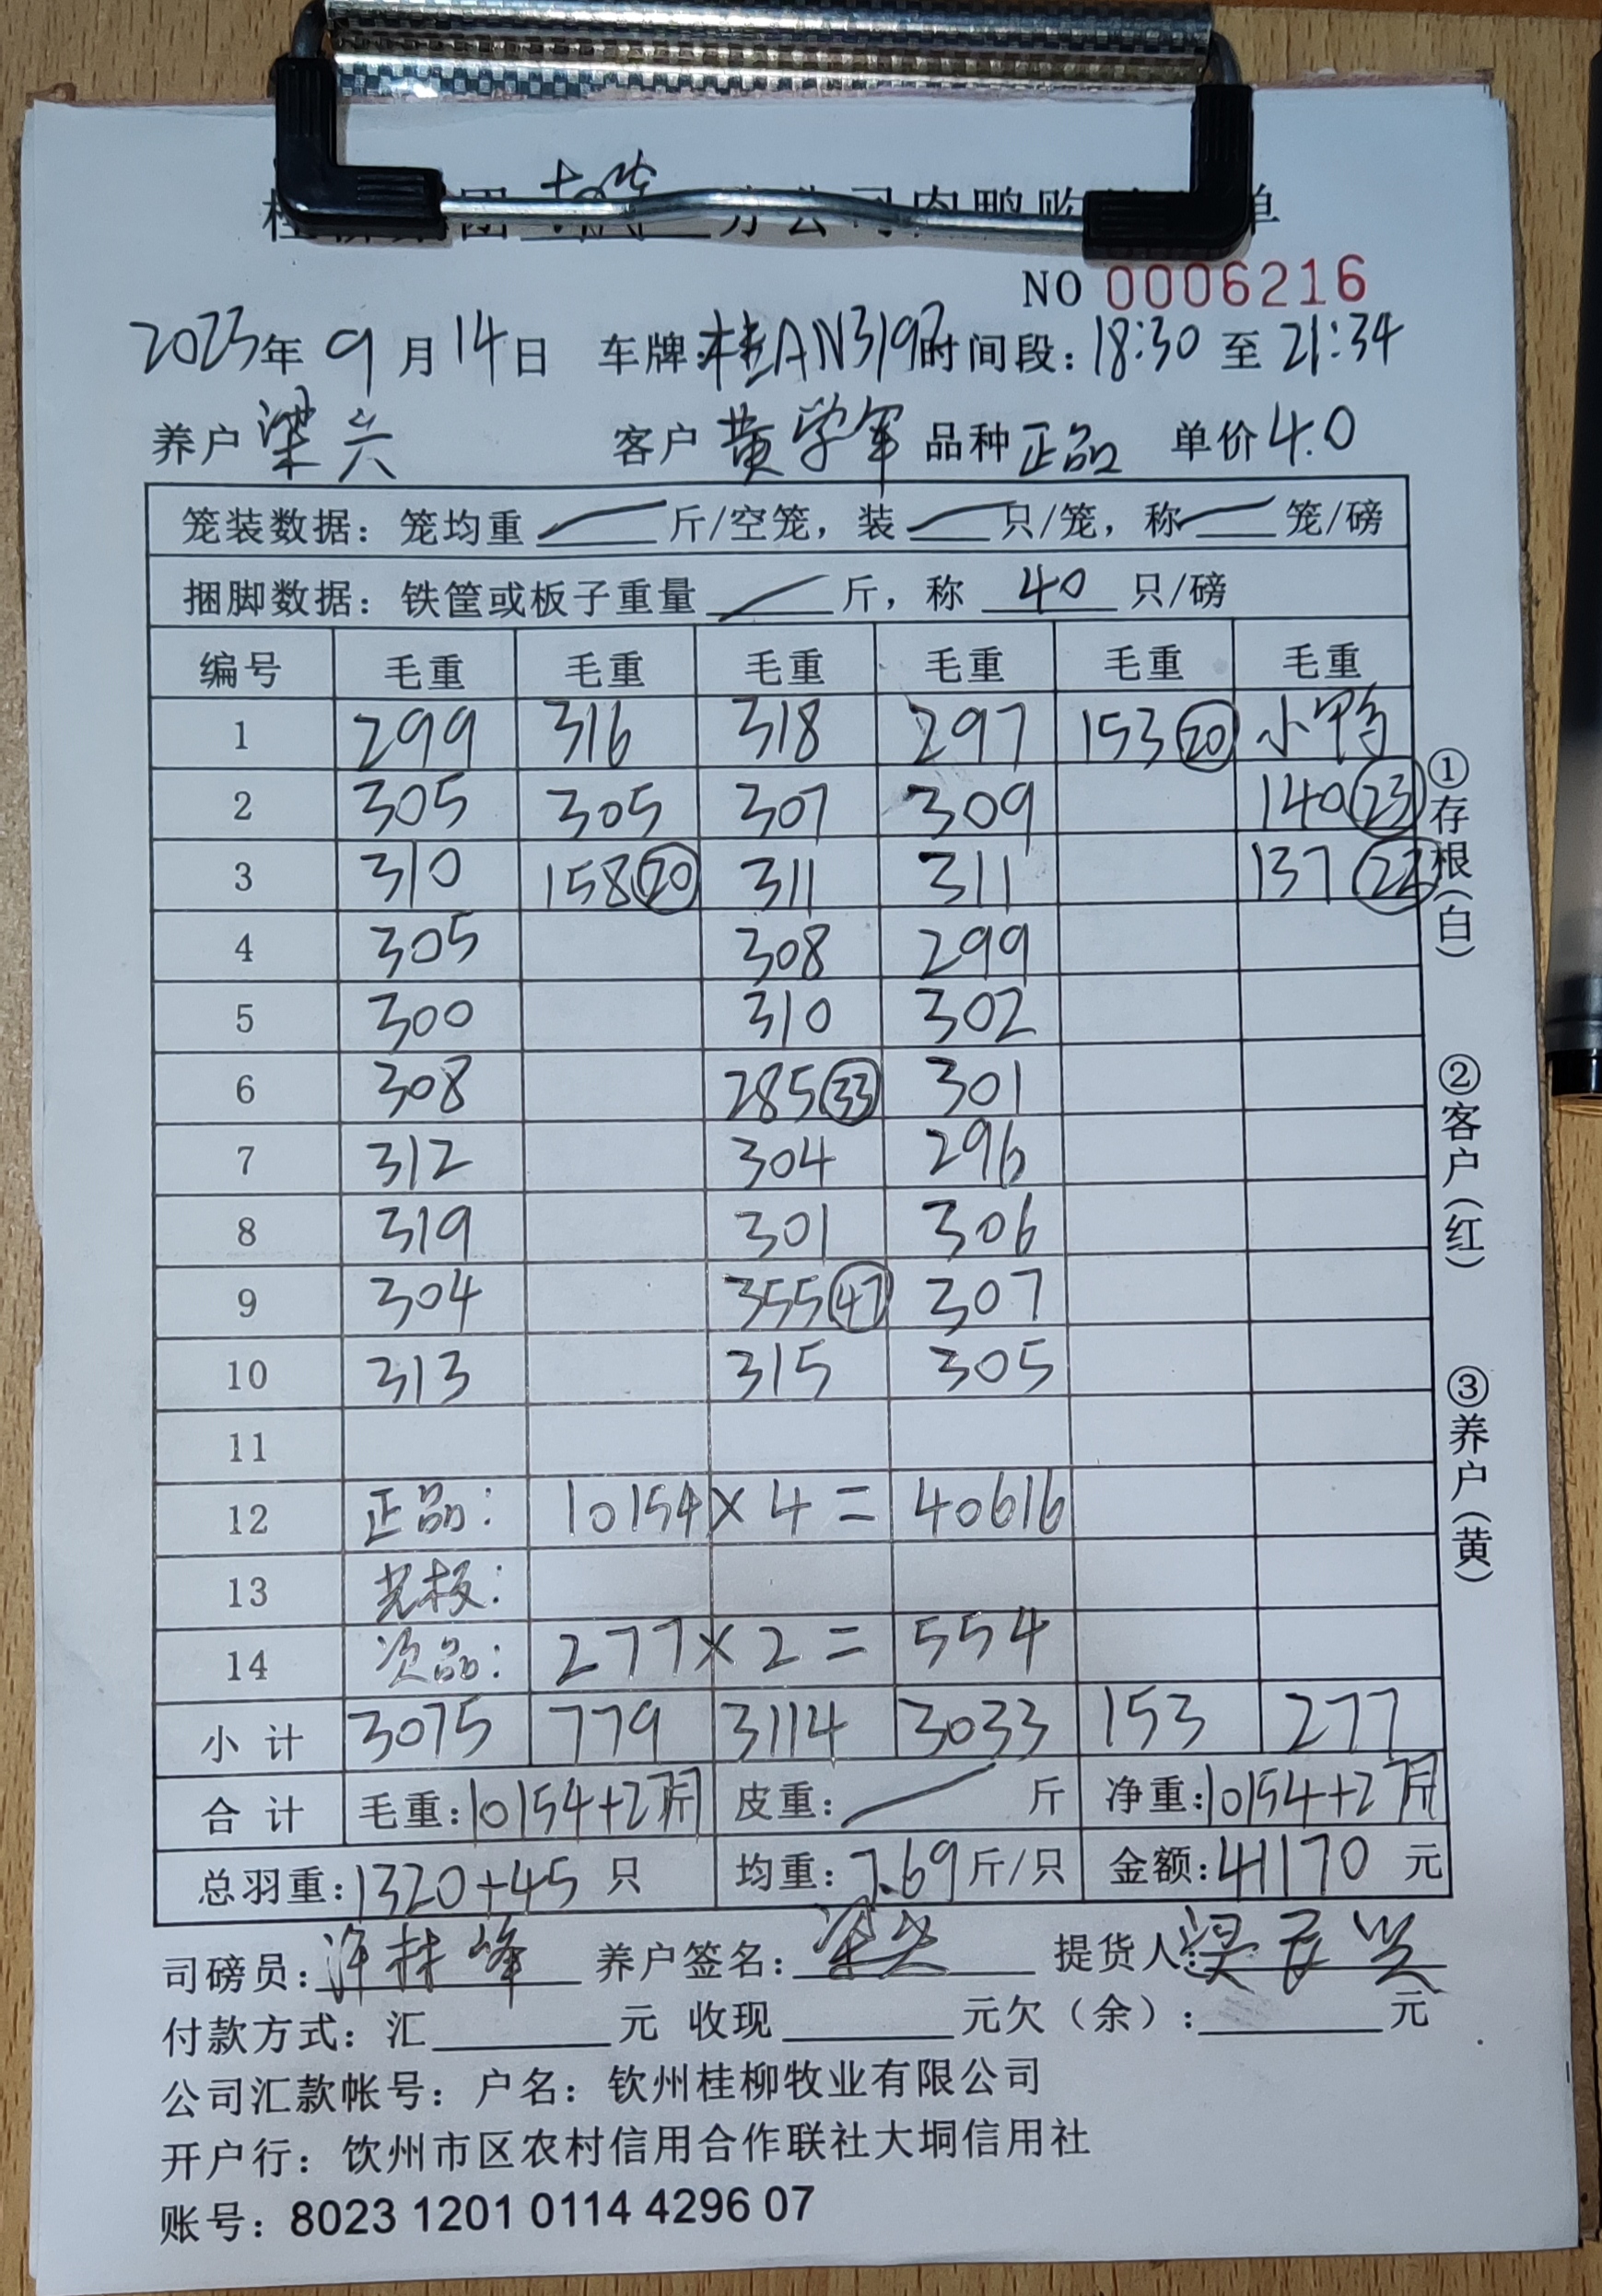 团 分公司肉鸭购 单
NO 0006216
2023年 9月14日 车牌:桂AN3197 时间段:18:30 至 21:34
养户 梁六 客户 黄学军 品种 正品 单价 4.0
笼装数据: 笼均重 斤/空笼, 装 只/笼, 称 笼/磅
捆脚数据: 铁筐或板子重量 斤, 称 40 只/磅
编号 毛重 毛重 毛重 毛重 毛重 毛重
1 299 316 318 297 153 ⑳ 小鸭
2 305 305 307 309 140 ㉓
3 310 158 ⑳ 311 311 137 ㉒
4 305 308 299
5 300 310 302
6 308 285 ㉝ 301
7 312 304 296
8 319 301 306
9 304 355 ㊼ 307
10 313 315 305
11
12 正品: 10154 × 4 = 40616
13 光板:
14 次品: 277 × 2 = 554
小计 3075 779 3114 3033 153 277
合计 毛重:10154+277斤 皮重: 斤 净重:10154+277斤
总羽重:1320+45 只 均重:7.69斤/只 金额:41170 元
司磅员: 养户签名:梁六 提货人:
付款方式: 汇 元 收现 元欠(余): 元
公司汇款帐号: 户名: 钦州桂柳牧业有限公司
开户行: 钦州市区农村信用合作联社大垌信用社
账号: 8023 1201 0114 4296 07
①存根(白) ②客户(红) ③养户(黄)